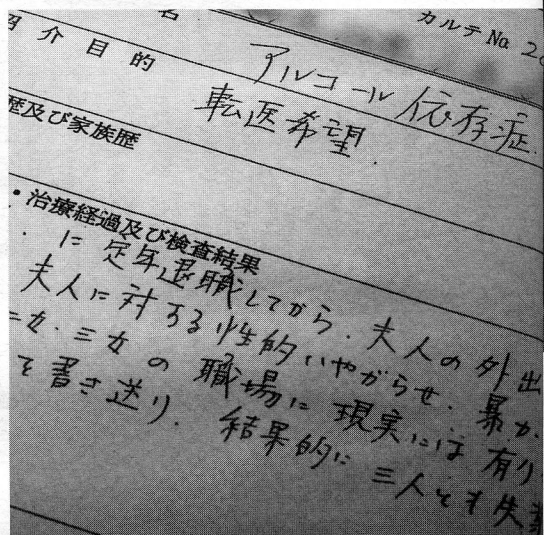 カルテ No. 20
名
介目的
アルコール依存症.
転医希望.
歴及び家族歴
・治療経過及び検査結果
に定年退職してから. 夫人の外出
夫人に対する性的いやがらせ. 暴力.
二女・三女の職場に現実には有り
を書き送り. 結果的に三人とも失